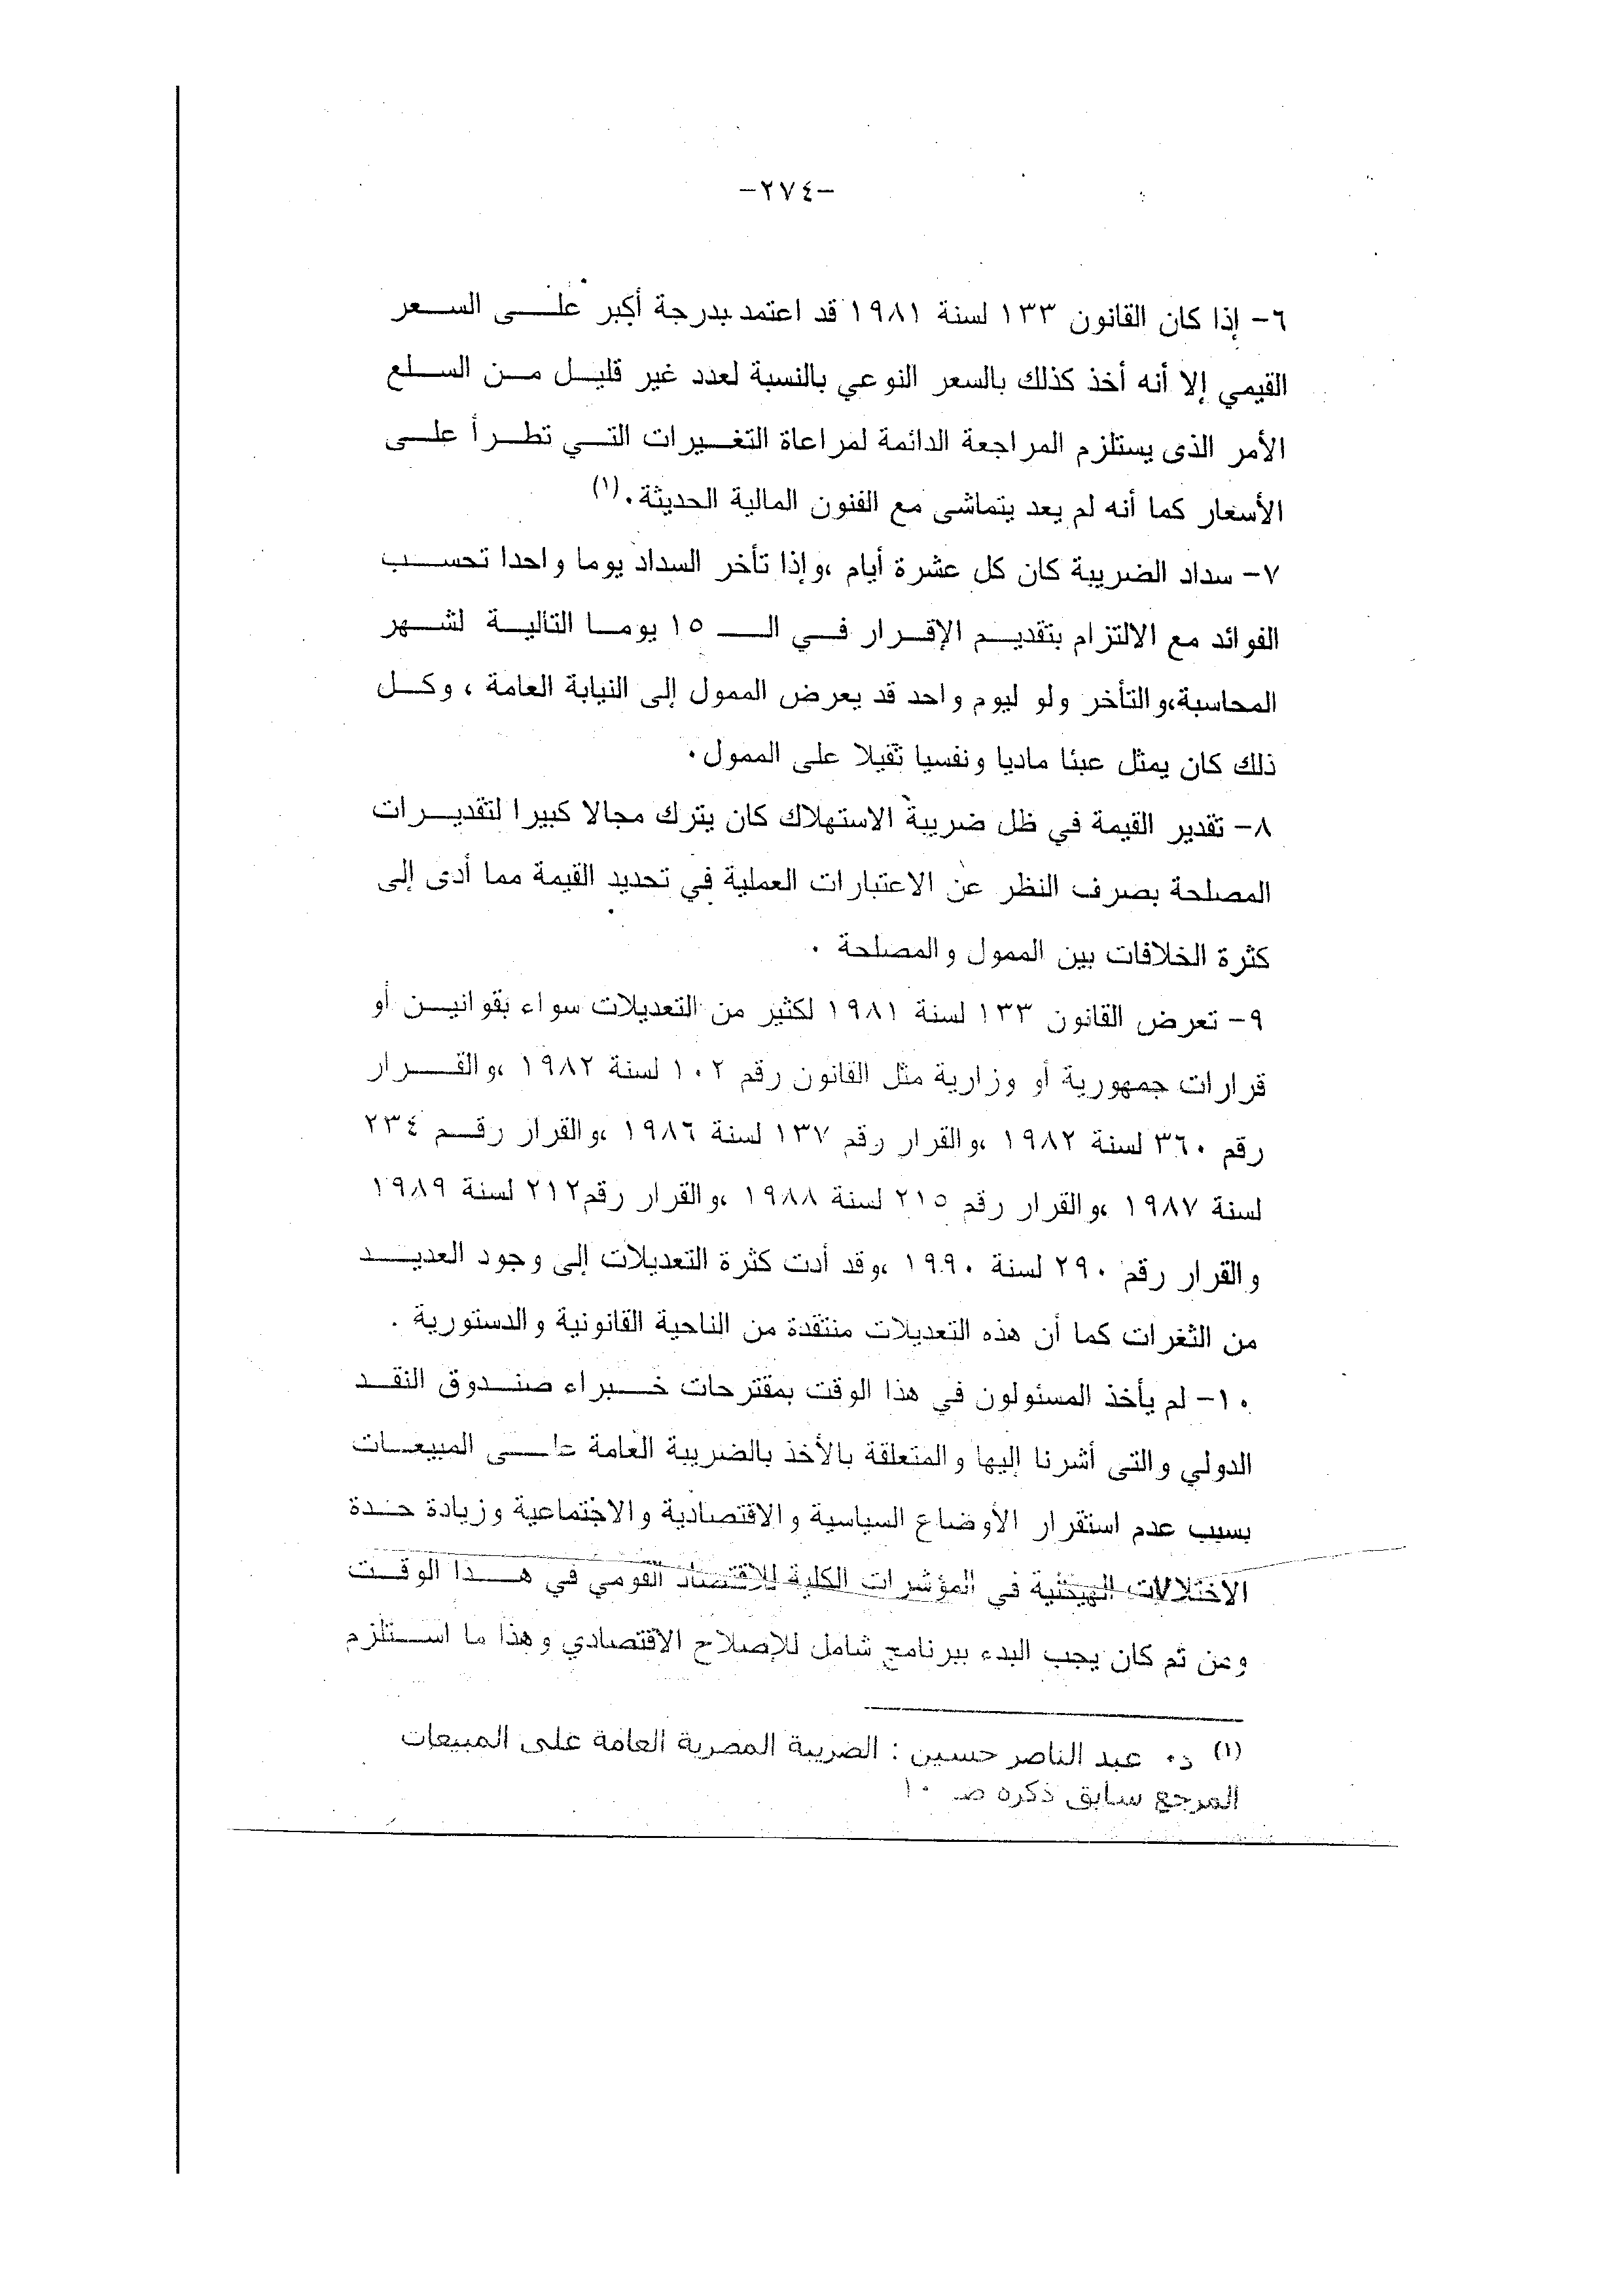 -٢٧٤-
٦- إذا كان القانون ١٣٣ لسنة ١٩٨١ قد اعتمد بدرجة أكبر على السعر
القيمي إلا أنه أخذ كذلك بالسعر النوعي بالنسبة لعدد غير قليل من السلع
الأمر الذى يستلزم المراجعة الدائمة لمراعاة التغيرات التي تطرأ على
الأسعار كما أنه لم يعد يتماشى مع الفنون المالية الحديثة.(١)
٧- سداد الضريبة كان كل عشرة أيام ،وإذا تأخر السداد يوما واحدا تحسب
الفوائد مع الالتزام بتقديم الإقرار في الـ ١٥ يوما التالية لشهر
المحاسبة،والتأخر ولو ليوم واحد قد يعرض الممول إلى النيابة العامة ، وكل
ذلك كان يمثل عبئا ماديا ونفسيا ثقيلا على الممول.
٨- تقدير القيمة في ظل ضريبة الاستهلاك كان يترك مجالا كبيرا لتقديرات
المصلحة بصرف النظر عن الاعتبارات العملية في تحديد القيمة مما أدى إلى
كثرة الخلافات بين الممول والمصلحة .
٩- تعرض القانون ١٣٣ لسنة ١٩٨١ لكثير من التعديلات سواء بقوانين أو
قرارات جمهورية أو وزارية مثل القانون رقم ١٠٢ لسنة ١٩٨٢ ،والقرار
رقم ٣٦٠ لسنة ١٩٨٢ ،والقرار رقم ١٣٧ لسنة ١٩٨٦ ،والقرار رقم ٢٣٤
لسنة ١٩٨٧ ،والقرار رقم ٢١٥ لسنة ١٩٨٨ ،والقرار رقم٢١٢ لسنة ١٩٨٩
والقرار رقم ٢٩٠ لسنة ١٩٩٠ ،وقد أدت كثرة التعديلات إلى وجود العديد
من الثغرات كما أن هذه التعديلات منتقدة من الناحية القانونية والدستورية .
١٠- لم يأخذ المسئولون في هذا الوقت بمقترحات خبراء صندوق النقد
الدولي والتى أشرنا إليها والمتعلقة بالأخذ بالضريبة العامة على المبيعات
بسبب عدم استقرار الأوضاع السياسية والاقتصادية والاجتماعية وزيادة حدة
الاختلالات الهيكلية في المؤشرات الكلية للاقتصاد القومي في هذا الوقت
ومن ثم كان يجب البدء ببرنامج شامل للإصلاح الاقتصادي وهذا ما استلزم
(١) د. عبد الناصر حسين : الضريبة المصرية العامة على المبيعات
المرجع سابق ذكره صـ ١٠